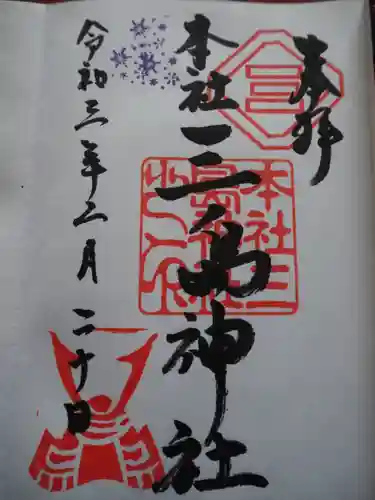 奉拝
三
本社三島神社
本社三
令和三年二月二十日